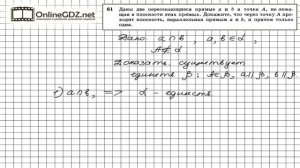 OnlineGDZ.net
61 Даны две пересекающиеся прямые a и b и точка A, не лежа-
щая в плоскости этих прямых. Докажите, что через точку A про-
ходит плоскость, параллельная прямым a и b, и притом только
одна.
Дано: a∩b, a,b∈α,
A∉α
Доказать: существует
единств β: A∈β, a∥β, b∥β
1) a∩b, => α – единств.